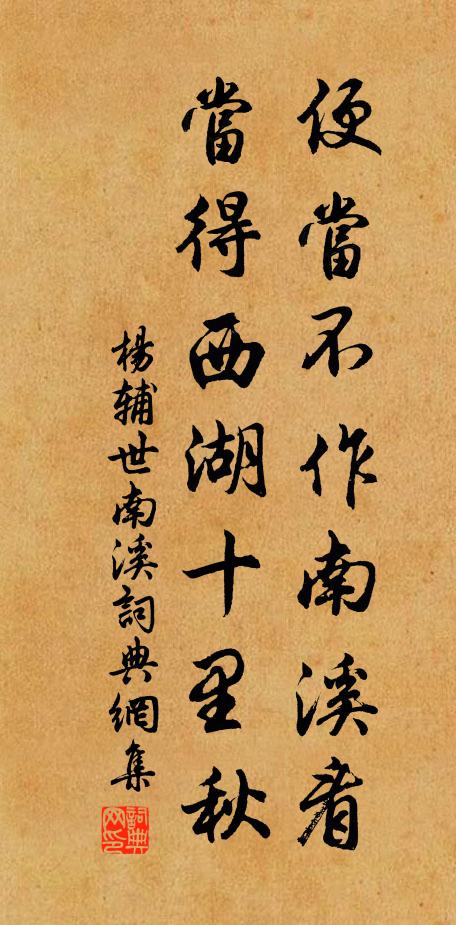 便當不作南溪看
當得西湖十里秋
楊輔世南溪詞典網集
詞典網印